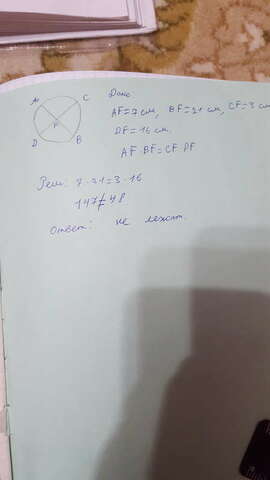 A C
F
D B
Дано
AF=7 см, BF=21 см, CF=3 см
DF=16 см.
AF BF=CF DF
Реш: 7·21=3·16
147≠48
Ответ: не лежат.